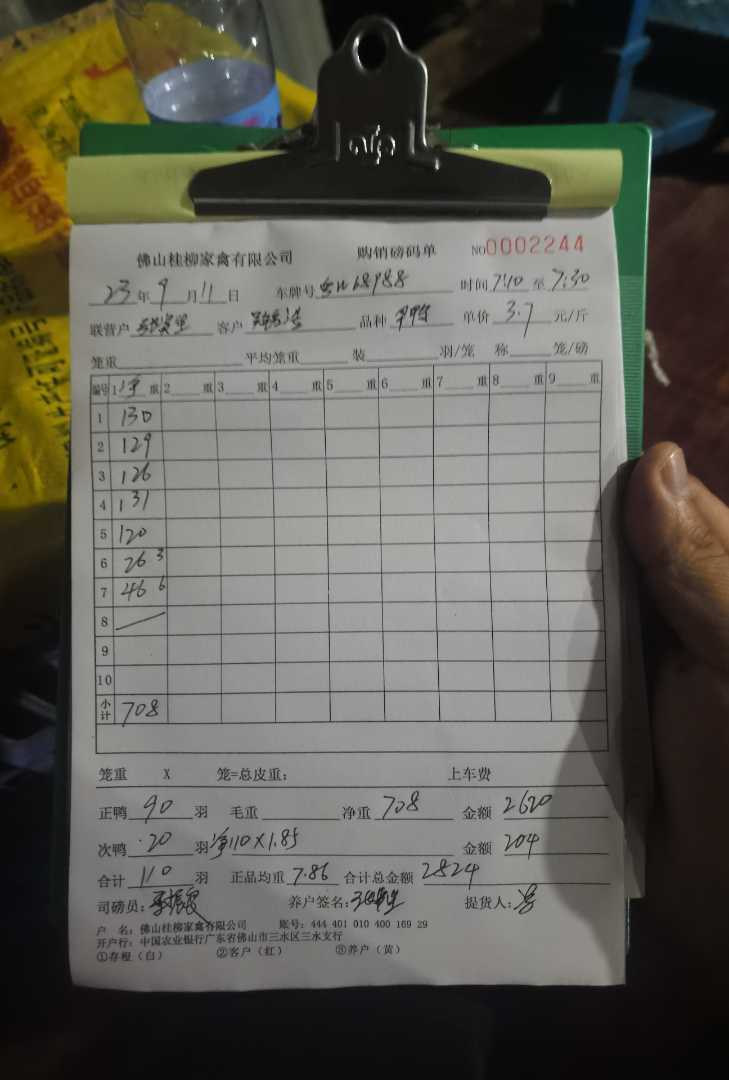 佛山桂柳家禽有限公司 购销磅码单 NO0002244
23年9月11日 车牌号 68988 时间7:10至7:30
联营户 客户 品种 单价3.7元/斤
笼重 平均笼重 装 羽/笼 称 笼/磅
编号 1净重 2 重 3 重 4 重 5 重 6 重 7 重 8 重 9 重
1 130
2 129
3 126
4 131
5 120
6 26 3
7 46 6
8
9
10
小计 708
笼重 X 笼=总皮重: 上车费
正鸭90羽 毛重 净重708 金额2620
次鸭20羽 净110X1.85 金额204
合计110羽 正品均重7.86 合计总金额2824
司磅员: 养户签名: 提货人:
户 名: 佛山桂柳家禽有限公司 账号: 444 401 010 400 169 29
开户行: 中国农业银行广东省佛山市三水区三水支行
①存根(白) ②客户(红) ③养户(黄)